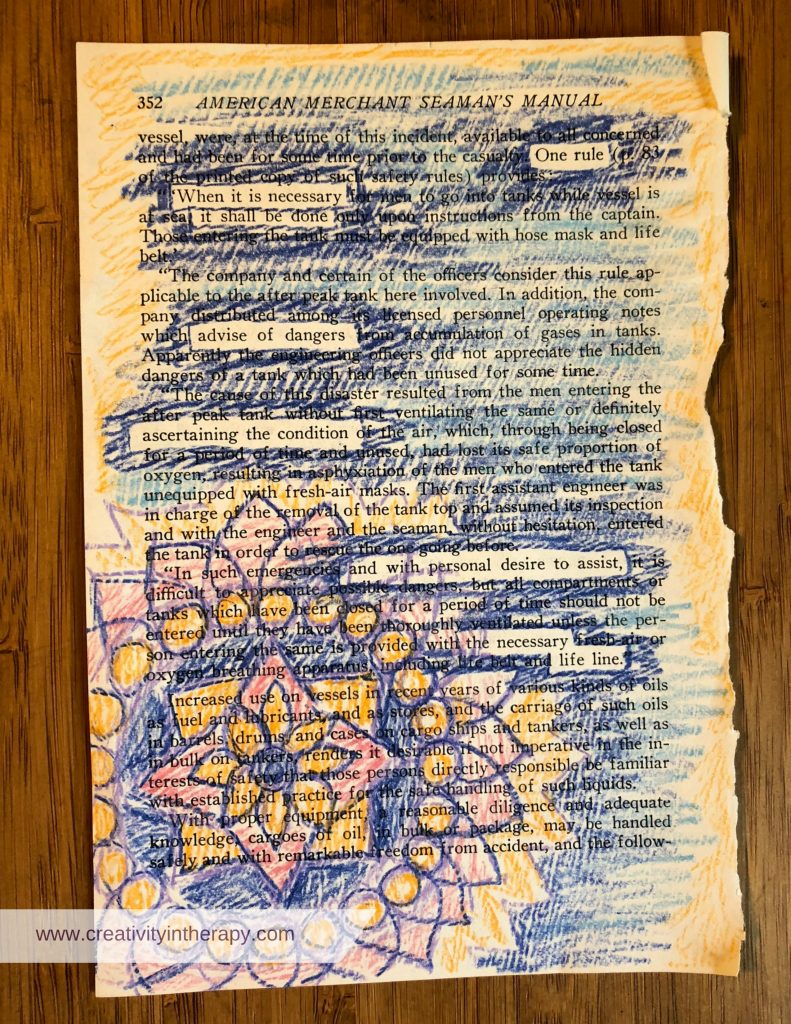 352 AMERICAN MERCHANT SEAMAN'S MANUAL
vessel, were, at the time of this incident, available to all concerned
and had been for some time prior to the casualty. One rule (p. 83
of the printed copy of such safety rules) provides:
"'When it is necessary for men to go into tanks while vessel is
at sea it shall be done only upon instructions from the captain.
Those entering the tank must be equipped with hose mask and life
belt.'
"The company and certain of the officers consider this rule ap-
plicable to the after peak tank here involved. In addition, the com-
pany distributed among its licensed personnel operating notes
which advise of dangers from accumulation of gases in tanks.
Apparently the engineering officers did not appreciate the hidden
dangers of a tank which had been unused for some time.
"The cause of this disaster resulted from the men entering the
after peak tank without first ventilating the same or definitely
ascertaining the condition of the air, which, through being closed
for a period of time and unused, had lost its safe proportion of
oxygen, resulting in asphyxiation of the men who entered the tank
unequipped with fresh-air masks. The first assistant engineer was
in charge of the removal of the tank top and assumed its inspection
and with the engineer and the seaman, without hesitation, entered
the tank in order to rescue the one going before.
"In such emergencies and with personal desire to assist, it is
difficult to appreciate possible dangers, but all compartments or
tanks which have been closed for a period of time should not be
entered until they have been thoroughly ventilated unless the per-
son entering the same is provided with the necessary fresh-air or
oxygen breathing apparatus, including life belt and life line."
Increased use on vessels in recent years of various kinds of oils
as fuel and lubricants, and as stores, and the carriage of such oils
in barrels, drums, and cases on cargo ships and tankers, as well as
in bulk on tankers, renders it desirable if not imperative in the in-
terests of safety that those persons directly responsible be familiar
with established practice for the safe handling of such liquids.
With proper equipment, a reasonable diligence and adequate
knowledge, cargoes of oil, in bulk or package, may be handled
safely and with remarkable freedom from accident, and the follow-
www.creativityintherapy.com